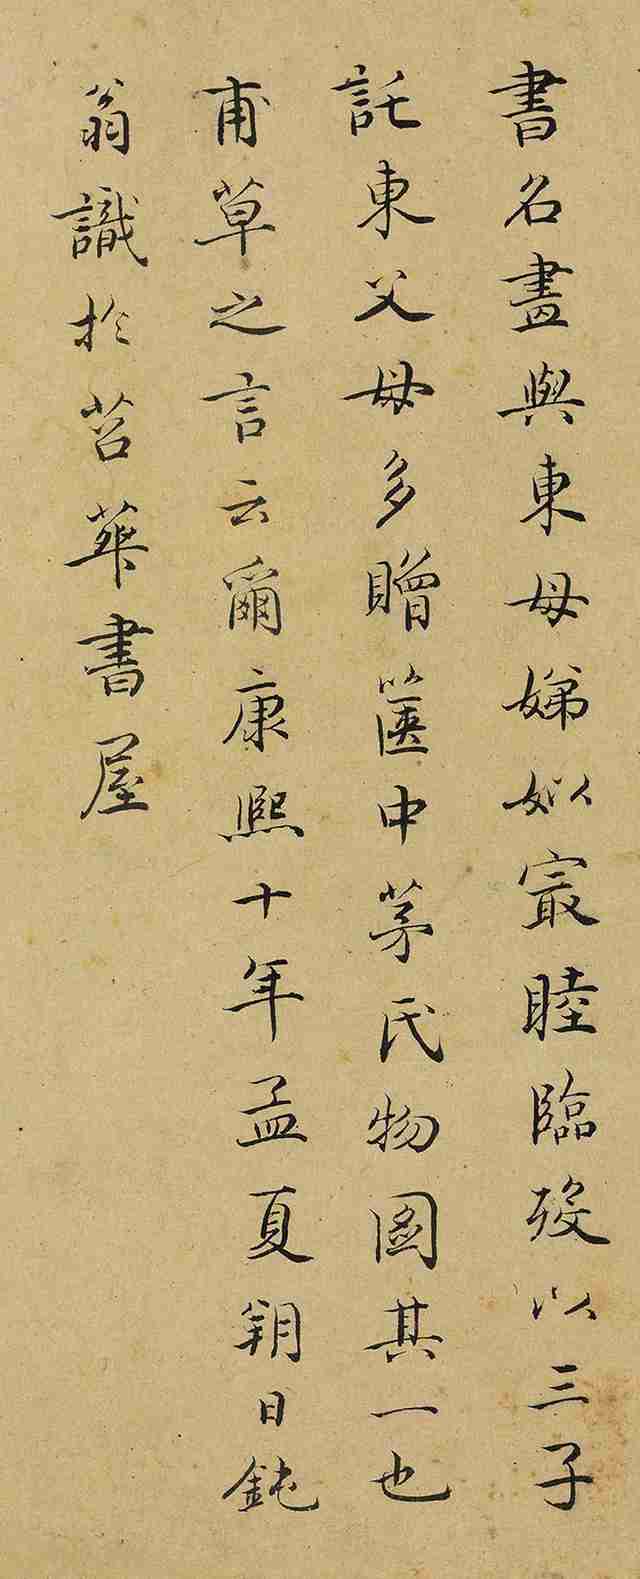 書名畫與東母娣姒冣睦臨歿以三子
託東父母多贈篋中茅氏物圖其一也
甫草之言云爾康熙十年孟夏朔日鈍
翁識於苕華書屋